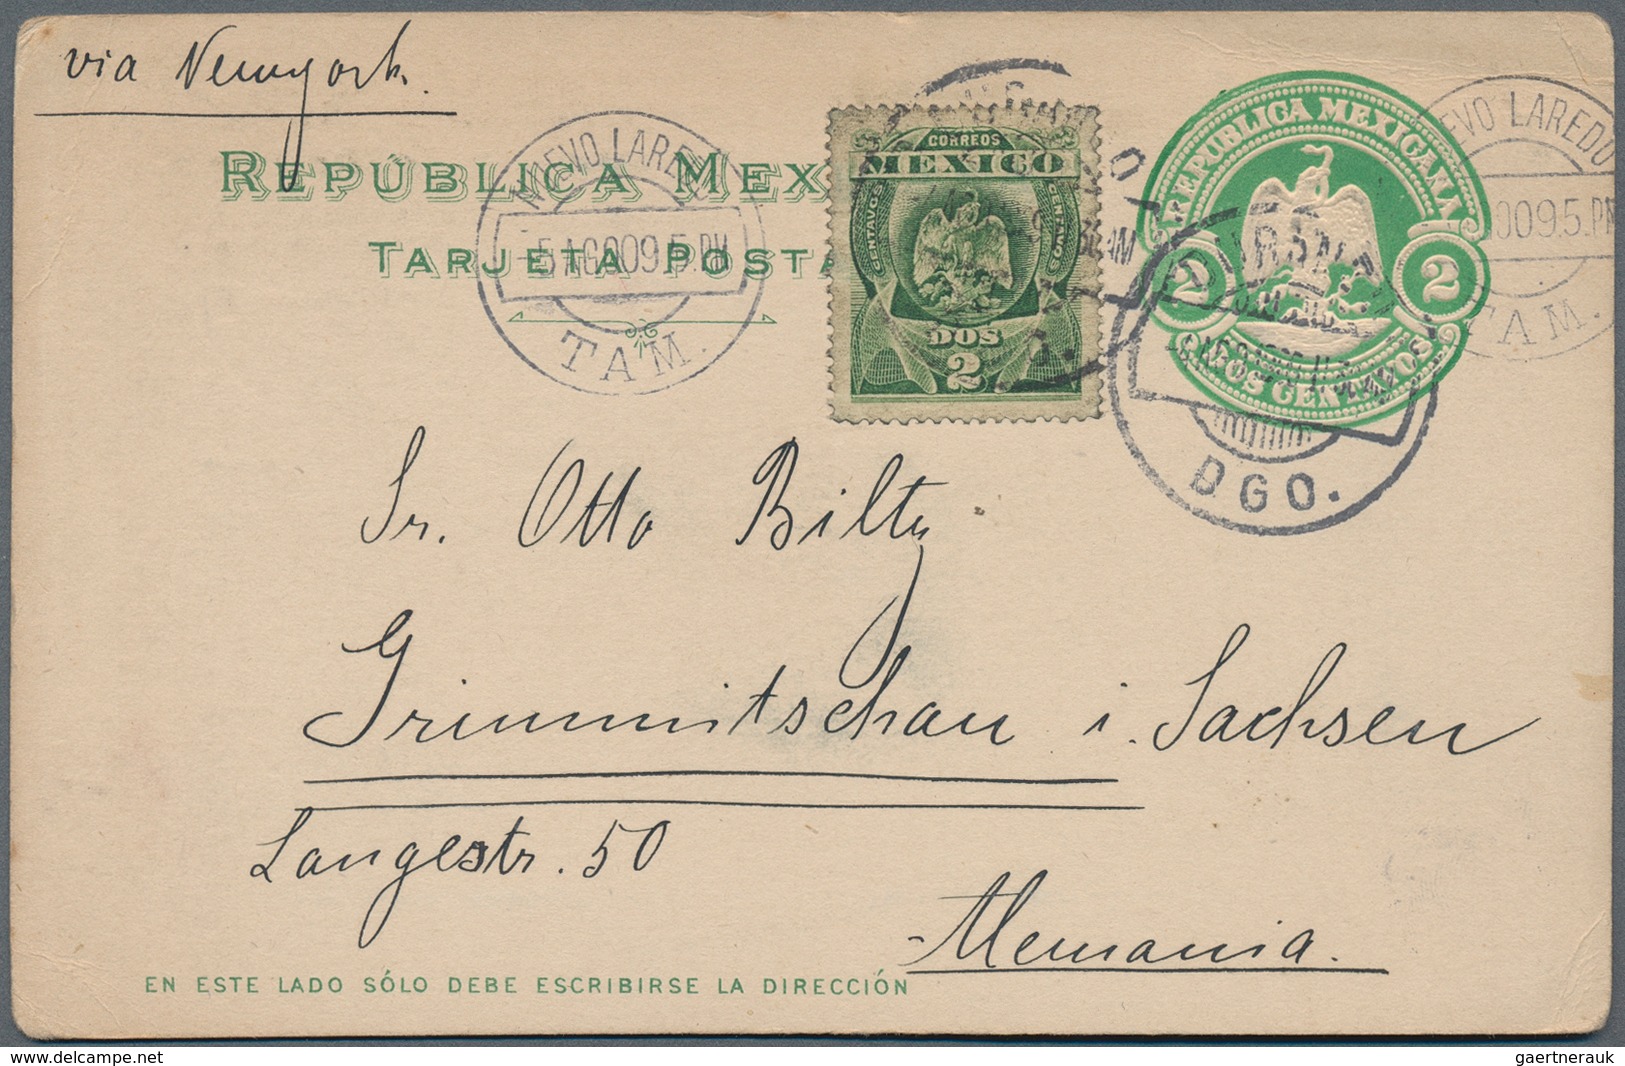 via Newyork.
REPÚBLICA MEX
TARJETA POSTA
NUEVO LAREDO
5 AGO 09 5. PM
TAM.
CORREOS
MEXICO
CENTAVOS
CENTAVOS
DOS
2
REPUBLICA MEXICANA
2
2
DOS CENTAVOS
DGO.
EVO LAREDO
O 09 5. PM
TAM.
Sr. Otto Bilty
Grimmitschau i. Sachsen
Langestr. 50
Alemania.
EN ESTE LADO SÓLO DEBE ESCRIBIRSE LA DIRECCIÓN
delcampe.net
gaertnerauk